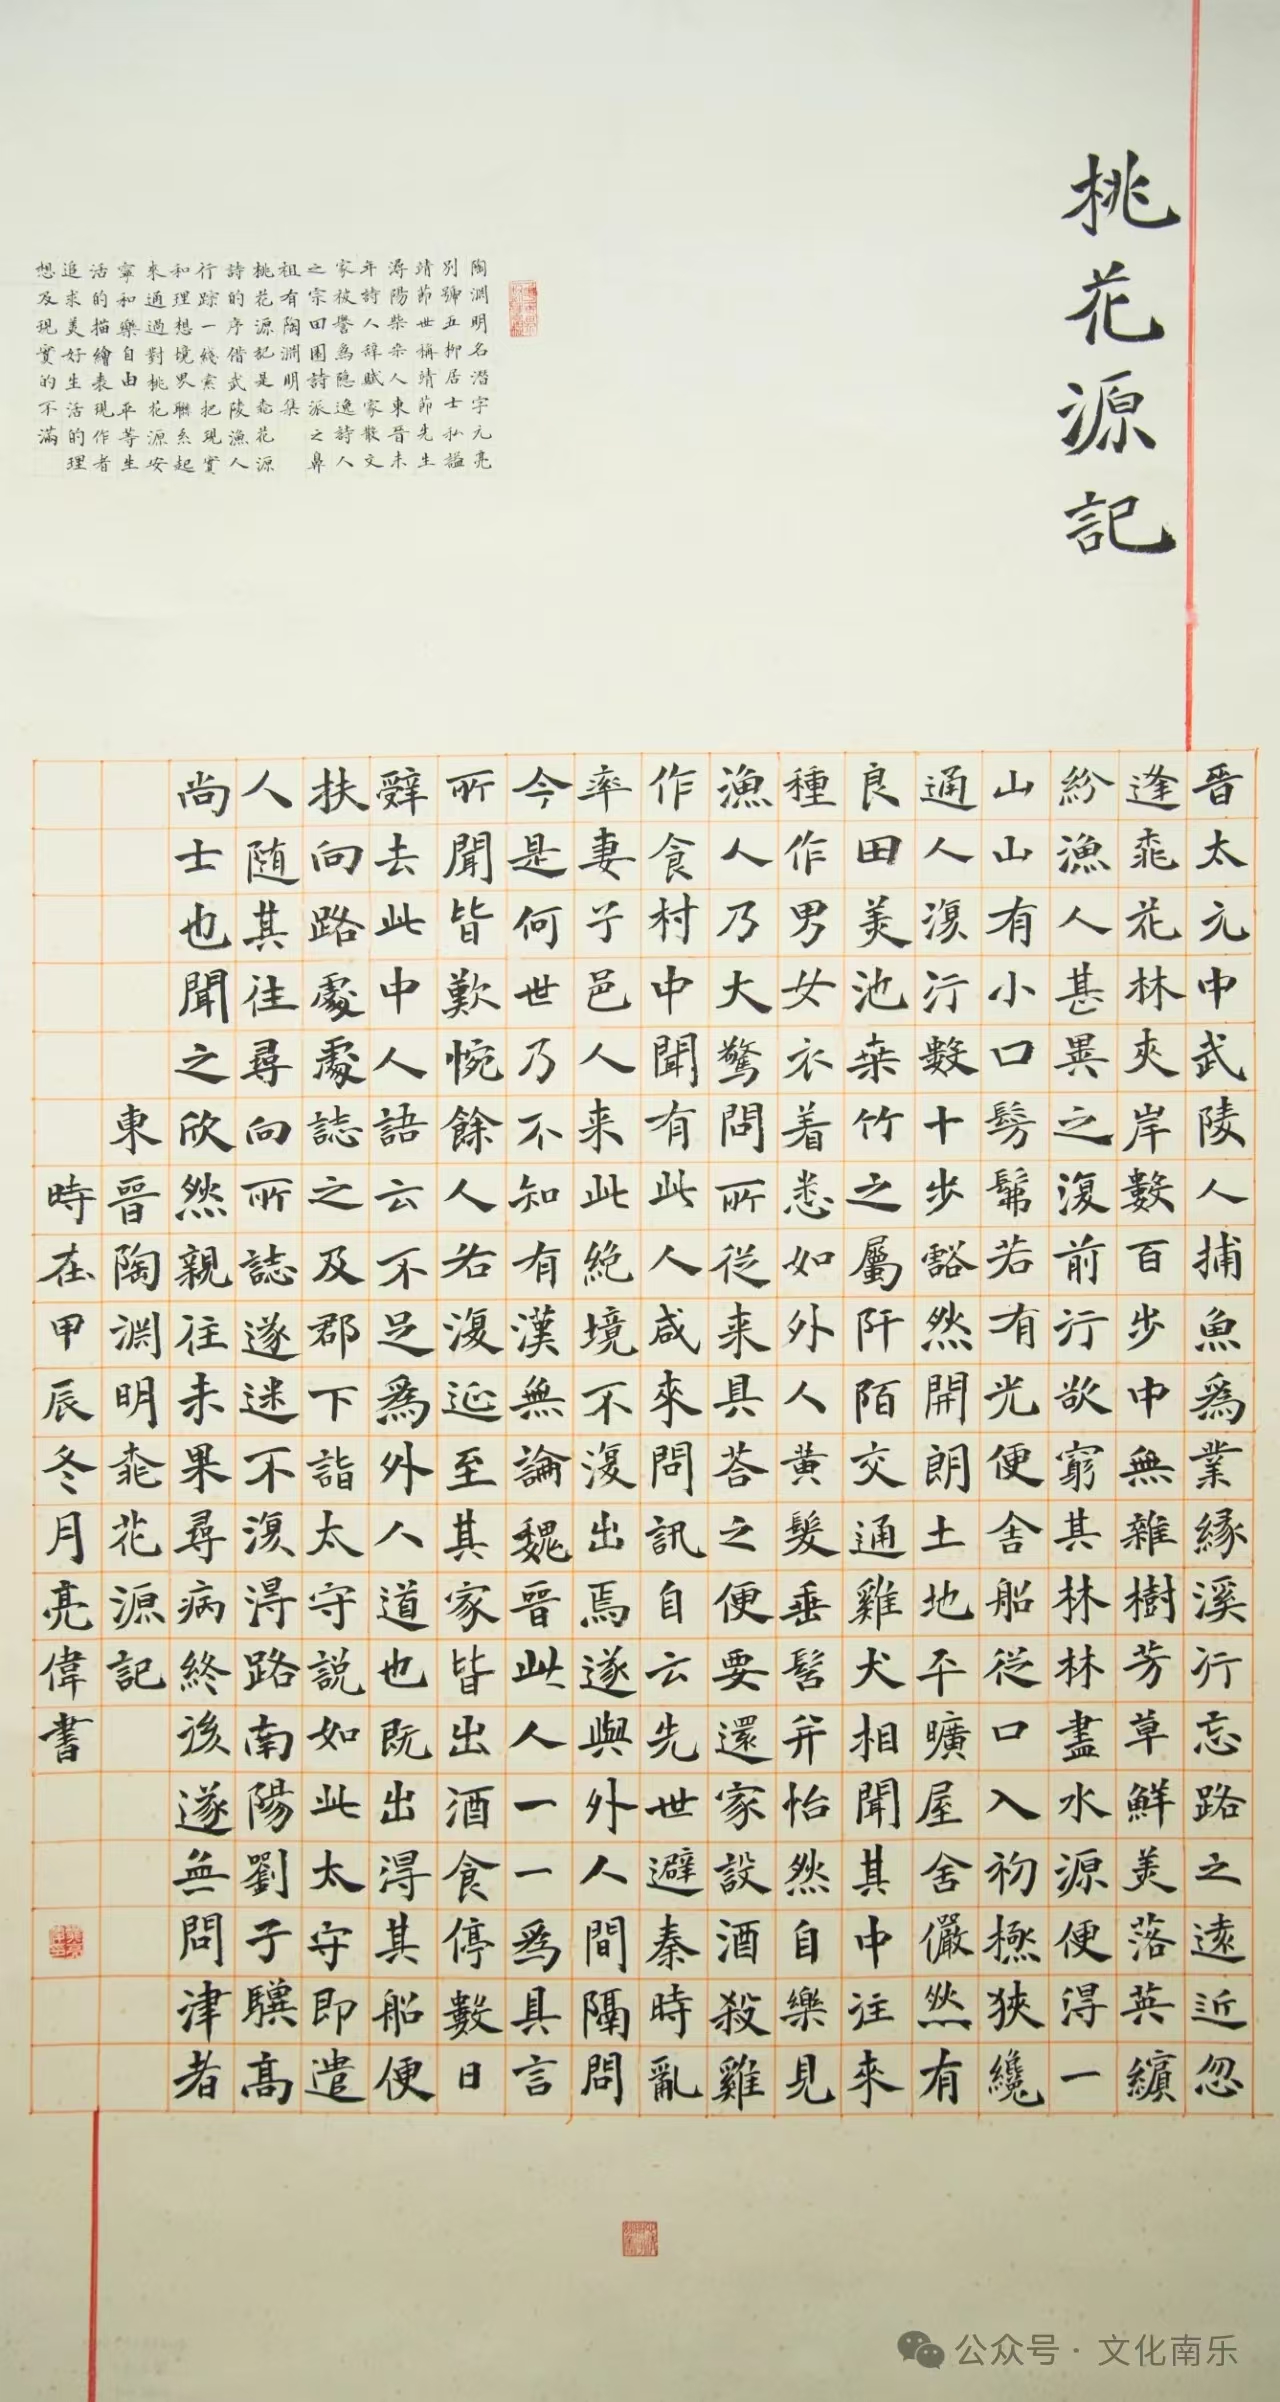 桃花源記
陶淵明名潛字元亮
別號五柳居士私謚
靖節世稱靖節先生
潯陽柴桑人東晉末
年詩人辭賦家散文
家被譽爲隐逸詩人
之宗田園詩派之鼻
祖有陶淵明集
桃花源記是桃花源
詩的序借武陵漁人
行踪一綫索把現實
和理想境界聯系起
來通過對桃花源安
寧和樂自由平等生
活的描繪表現作者
追求美好生活的理
想及現實的不滿
晉太元中武陵人捕魚爲業緣溪行忘路之遠近忽
逢桃花林夾岸數百步中無雜樹芳草鮮美落英繽
紛漁人甚異之復前行欲窮其林林盡水源便得一
山山有小口髣髴若有光便舍船從口入初極狹纔
通人復行數十步豁然開朗土地平曠屋舍儼然有
良田美池桑竹之屬阡陌交通雞犬相聞其中往來
種作男女衣着悉如外人黄髮垂髫并怡然自樂見
漁人乃大驚問所從来具荅之便要還家設酒殺雞
作食村中聞有此人咸來問訊自云先世避秦時亂
率妻子邑人来此絕境不復出焉遂與外人間隔問
今是何世乃不知有漢無論魏晉此人一一爲具言
所聞皆歎惋餘人右復延至其家皆出酒食停數日
辭去此中人語云不足爲外人道也既出得其船便
扶向路處處誌之及郡下詣太守説如此太守即遣
人随其往尋向所誌遂迷不復得路南陽劉子驥高
尚士也聞之欣然親往未果尋病終後遂無問津者
東晉陶淵明桃花源記
時在甲辰冬月亮偉書
公众号·文化南乐